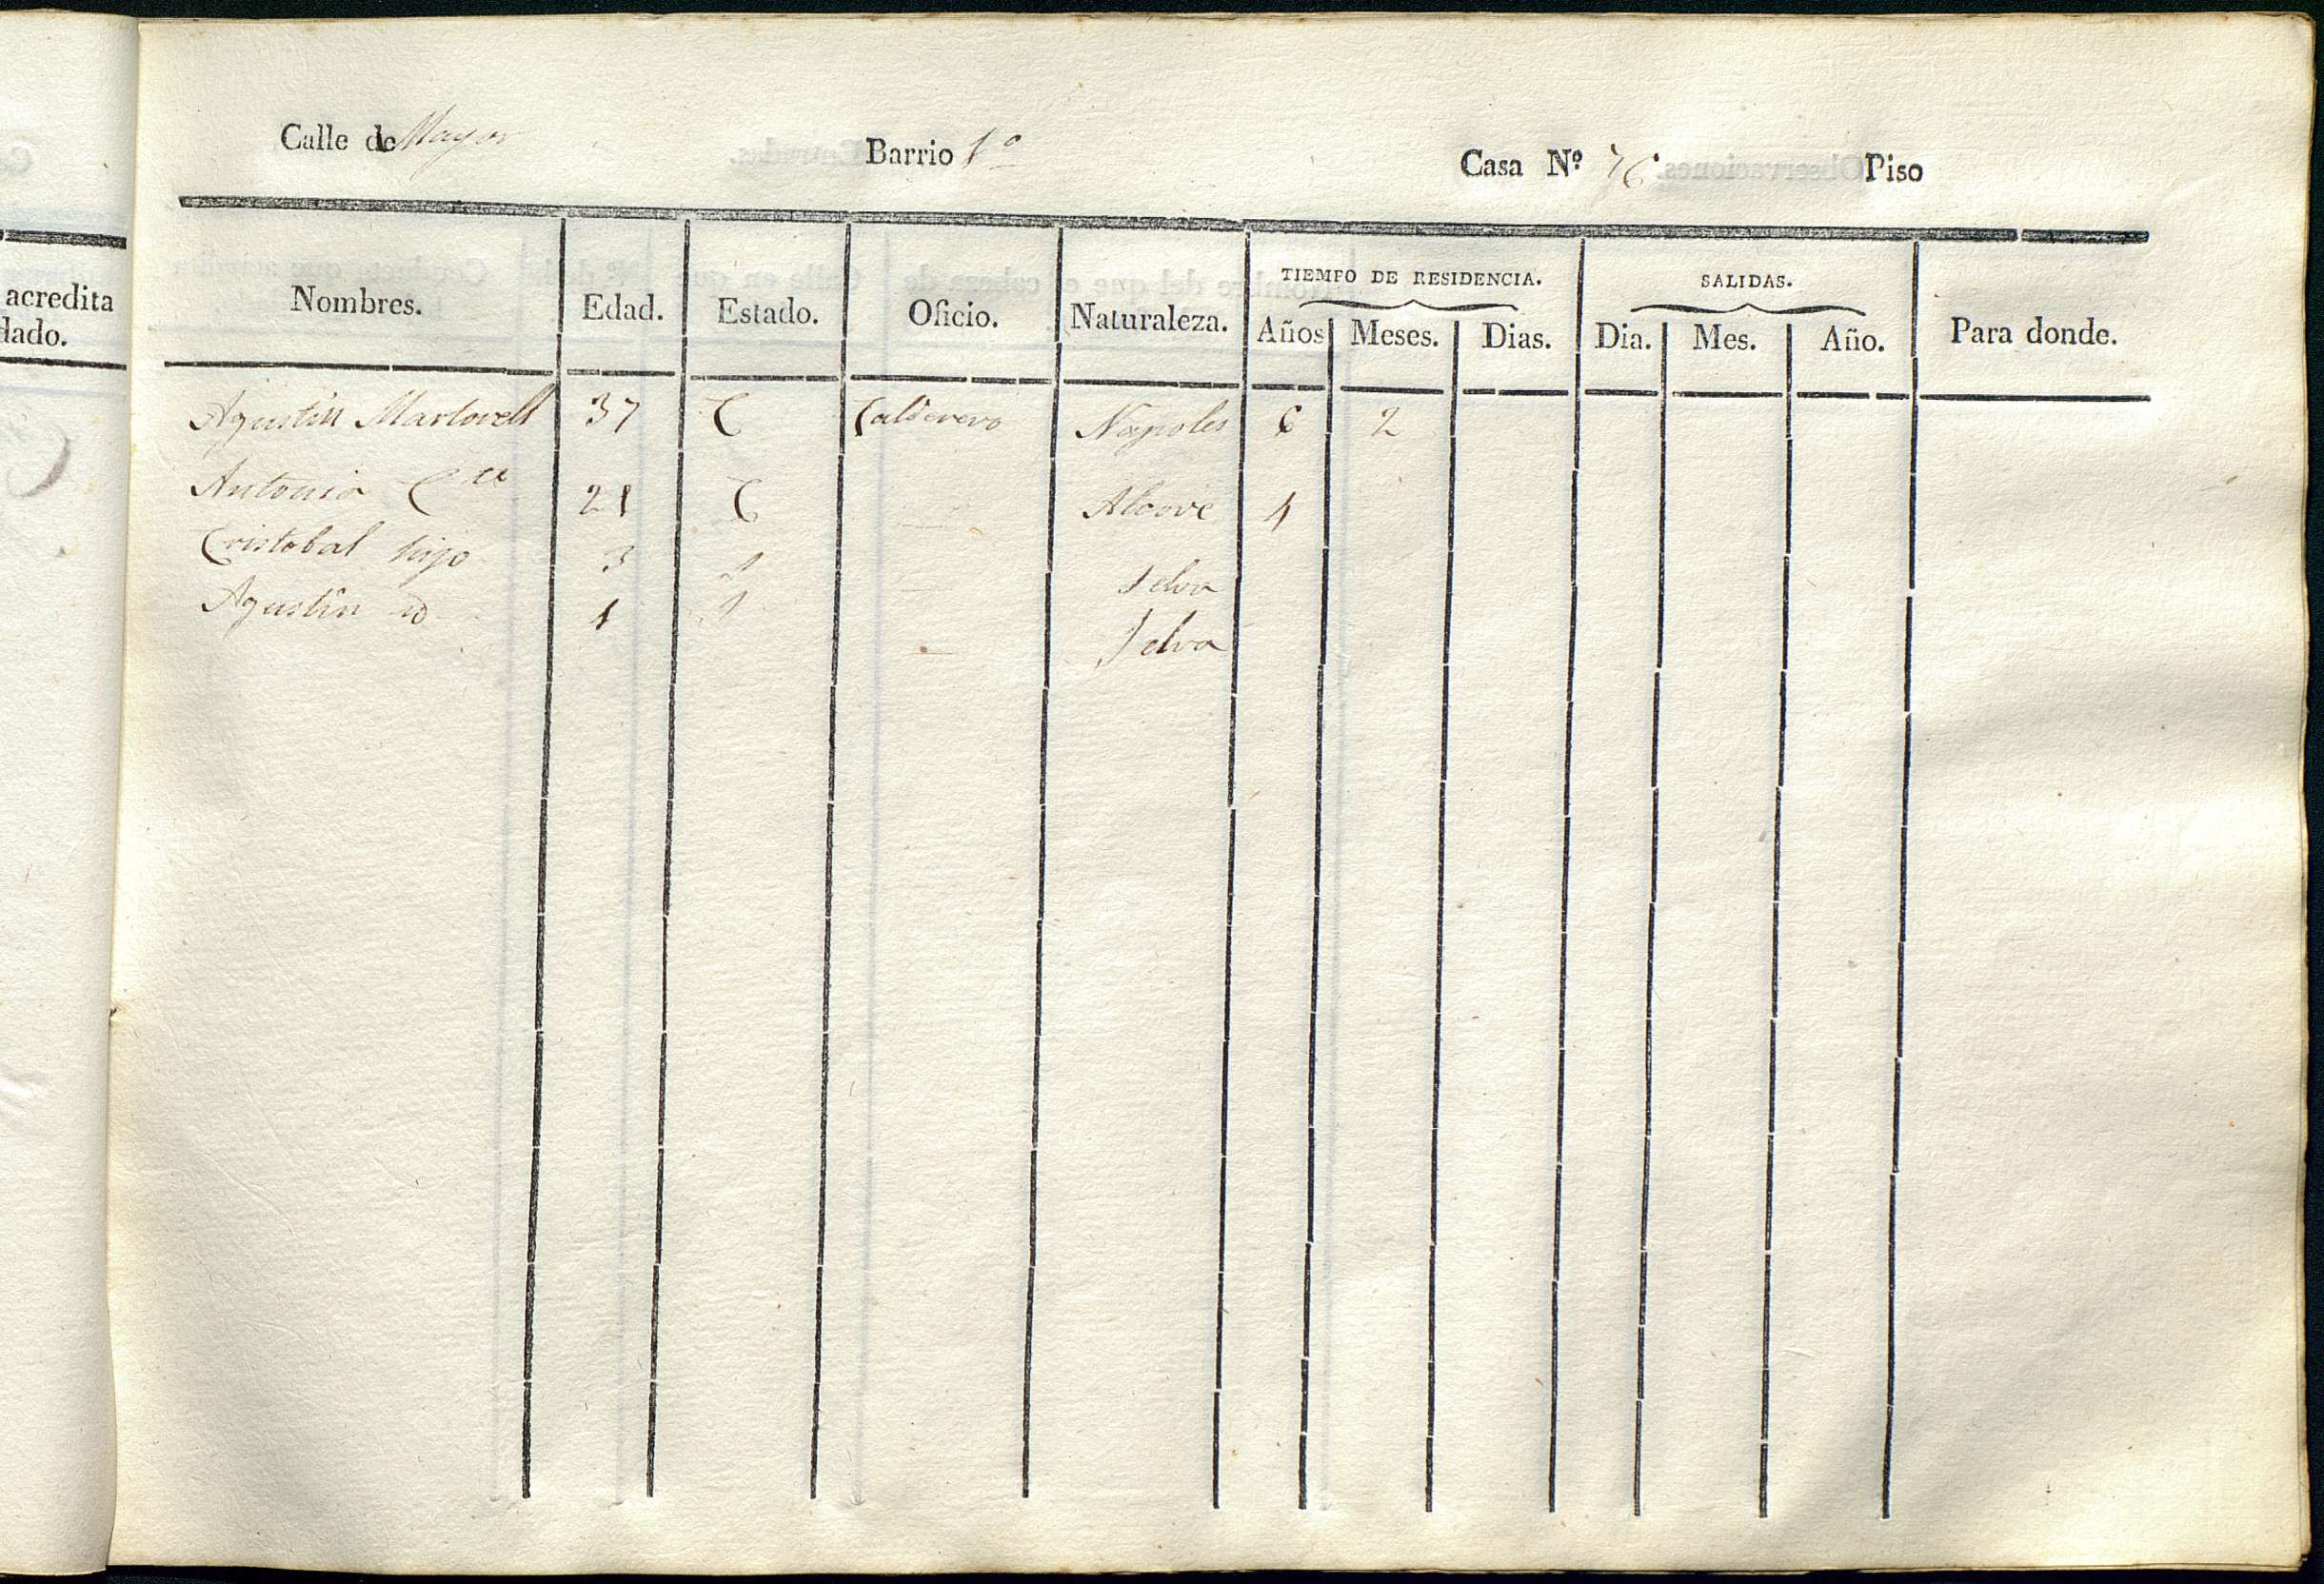 acredita
dado.
Calle de Mayor Barrio 1º Casa Nº 76 Piso
Nombres. Edad. Estado. Oficio. Naturaleza. TIEMPO DE RESIDENCIA. SALIDAS. Para donde.
Años Meses. Dias. Dia. Mes. Año.
Agustin Martorell 37 C Calderero Napoles 6 2
Antonia C ca 21 C Alcove 4
Cristobal hijo 3 S Selva
Agustin id 1 S Selva